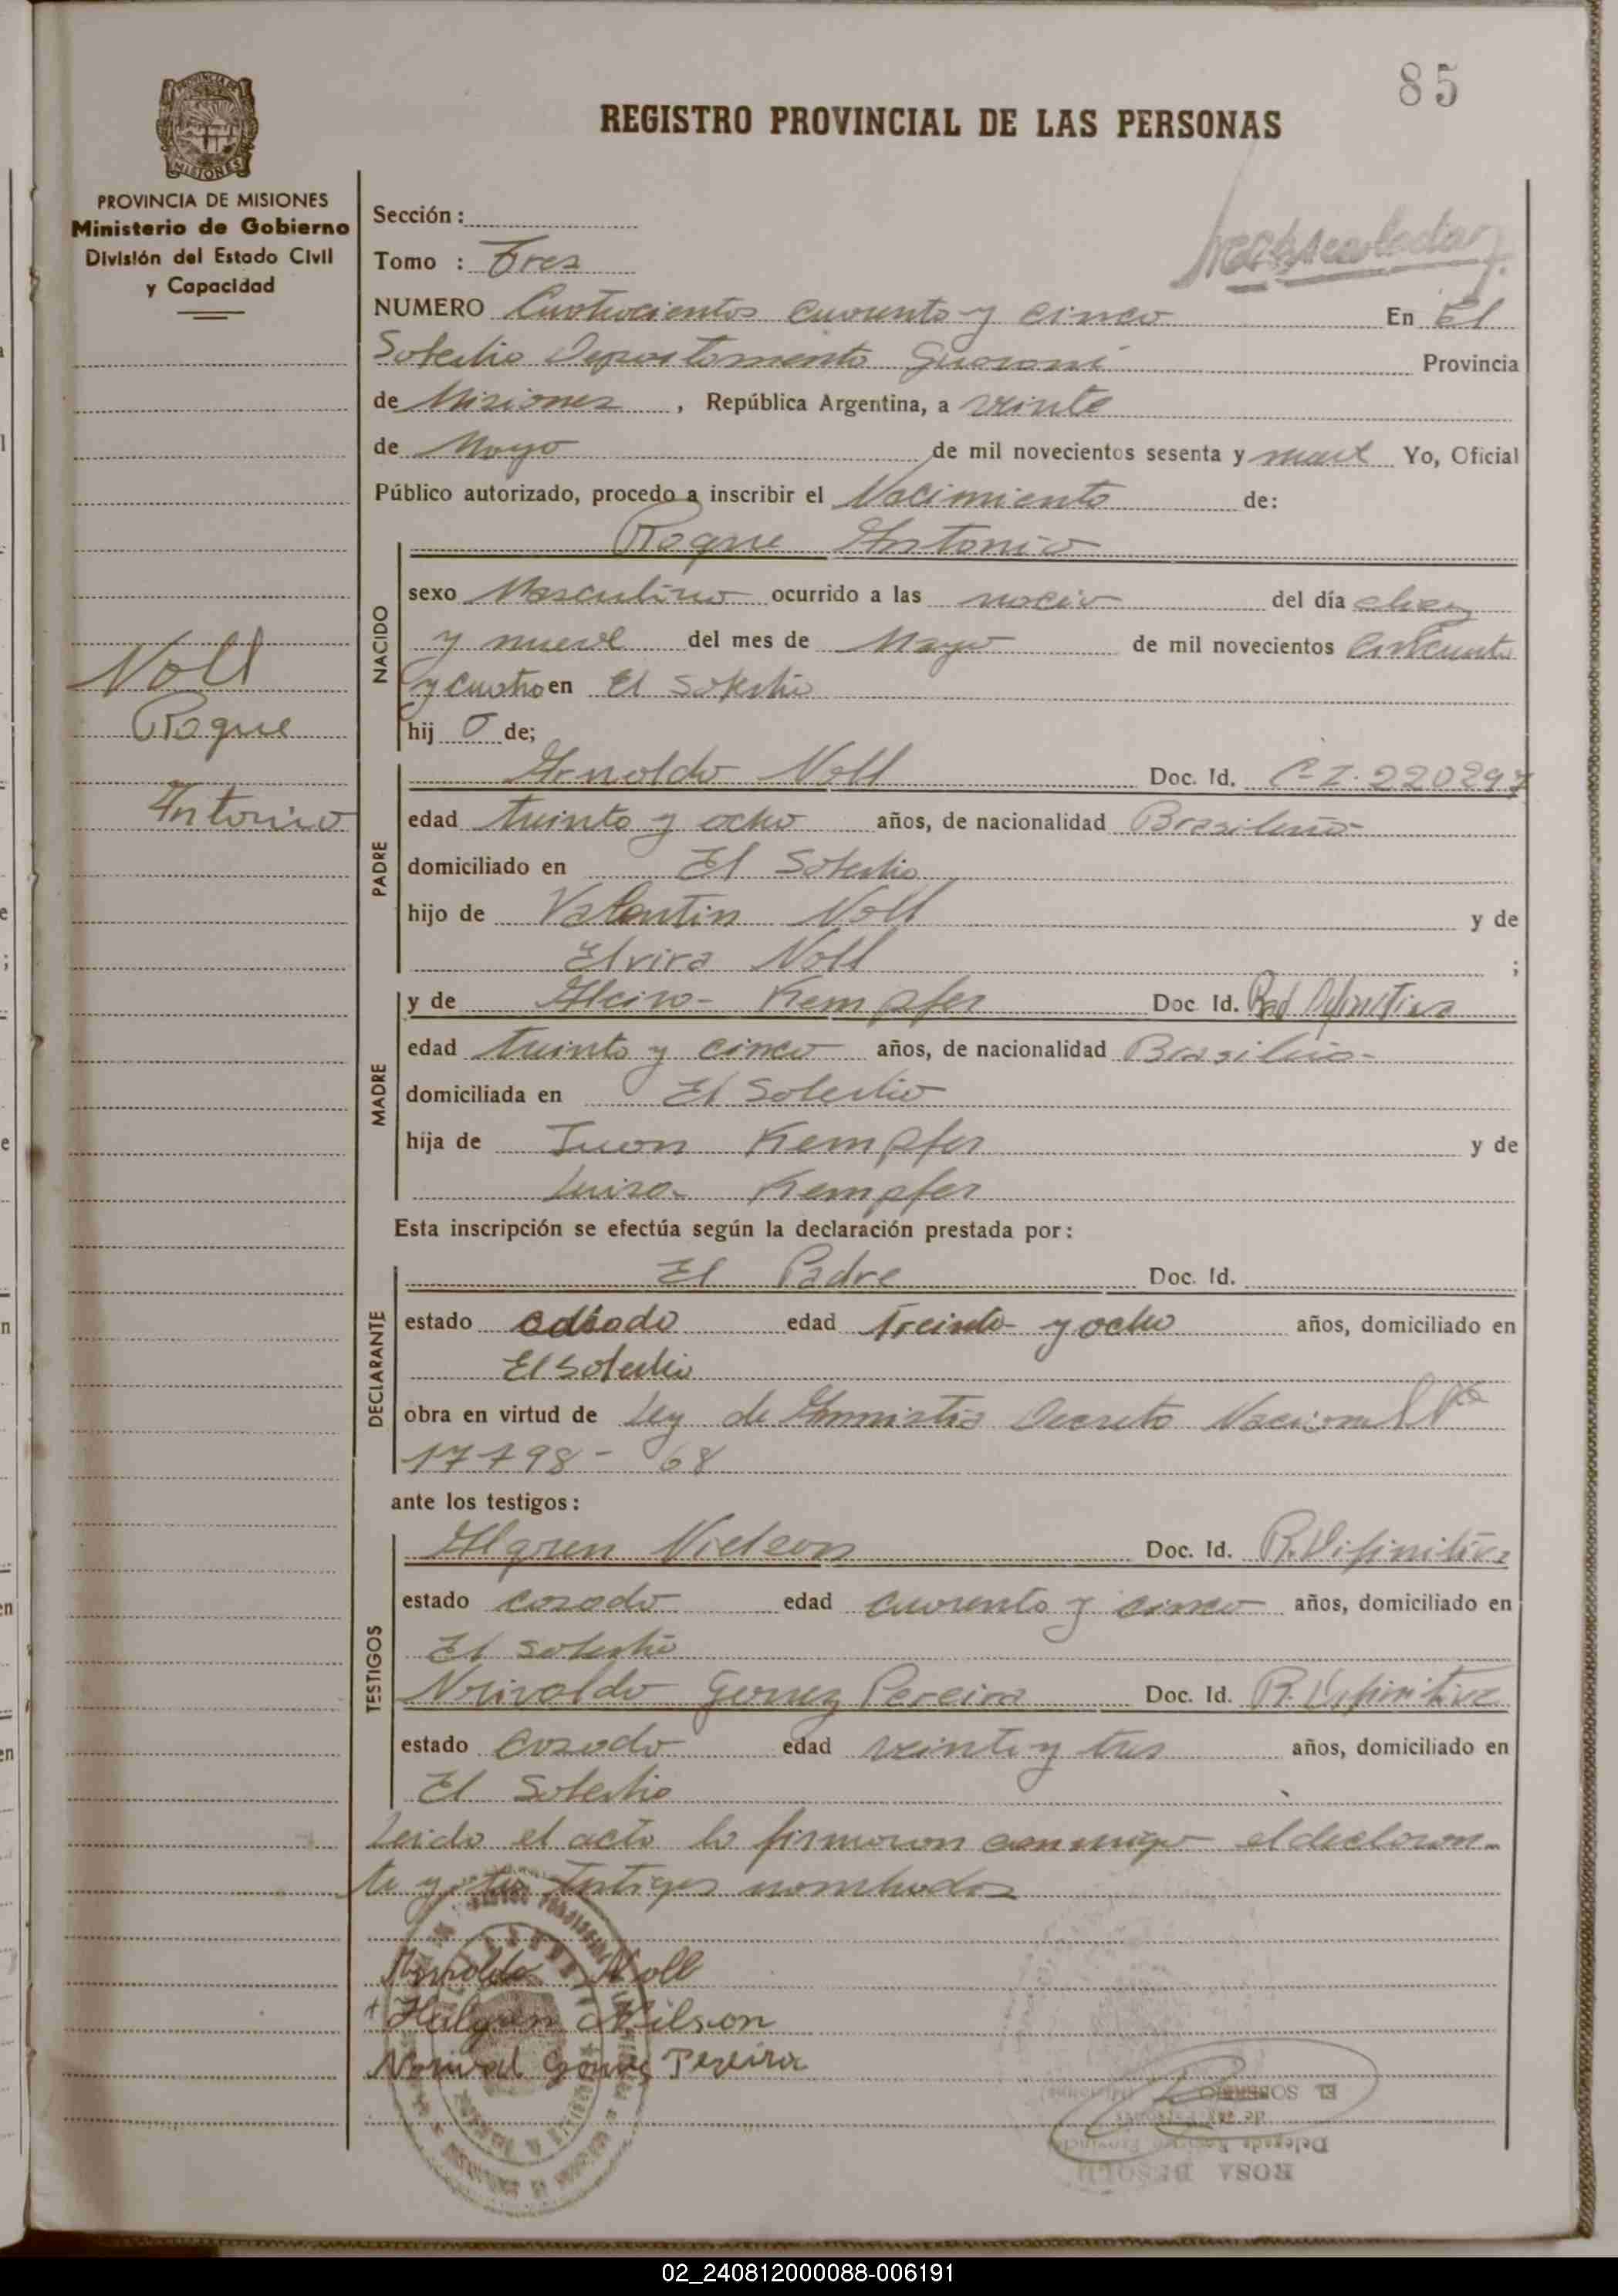 85
REGISTRO PROVINCIAL DE LAS PERSONAS
PROVINCIA DE
MISIONES
PROVINCIA DE MISIONES
Ministerio de Gobierno
División del Estado Civil
y Capacidad
Noll
Roque
Antonio
Sección :
Tomo : Tres
NUMERO Cuatrocientos cuarenta y cinco En El
Soberbio Departamento Guarani Provincia
de Misiones , República Argentina, a veinte
de Mayo de mil novecientos sesenta y nueve Yo, Oficial
Público autorizado, procedo a inscribir el Nacimiento de:
Roque Antonio
NACIDO
sexo Masculino ocurrido a las del día diez
y nueve del mes de Mayo de mil novecientos cincuenta
y cuatro en El Soberbio
hij o de;
PADRE
Arnoldo Noll Doc. Id. C-I. 220297
edad treinta y ocho años, de nacionalidad Brasileño
domiciliado en El Soberbio
hijo de Valentin Noll y de
Elvira Noll ;
MADRE
y de Alcira Kempfer Doc Id. Rad Definitiva
edad treinta y cinco años, de nacionalidad Brasileña
domiciliada en El Soberbio
hija de Juan Kempfer y de
Luisa Kempfer
Esta inscripción se efectúa según la declaración prestada por:
DECLARANTE
El Padre Doc. Id.
estado casado edad Treinta y ocho años, domiciliado en
El Soberbio
obra en virtud de Ley de Amnistia Decreto Nacional Nº
17798-68
ante los testigos:
TESTIGOS
Algren Nielson Doc. Id. R. Difinitiva
estado casado edad cuarenta y cinco años, domiciliado en
El Soberbio
Nrivaldo Gomez Pereira Doc. Id. R. Difinitiva
estado casado edad veinte y tres años, domiciliado en
El Soberbio
Leido el acta la firmaron conmigo el declaran-
te y los testigos nombrados
Arnoldo Noll
Halgren Nilson
Norival Gomes Pereira
EL SOBERBIO (Misiones)
de las Personas
Delegada Registro Provincial
ROSA
02_240812000088-006191